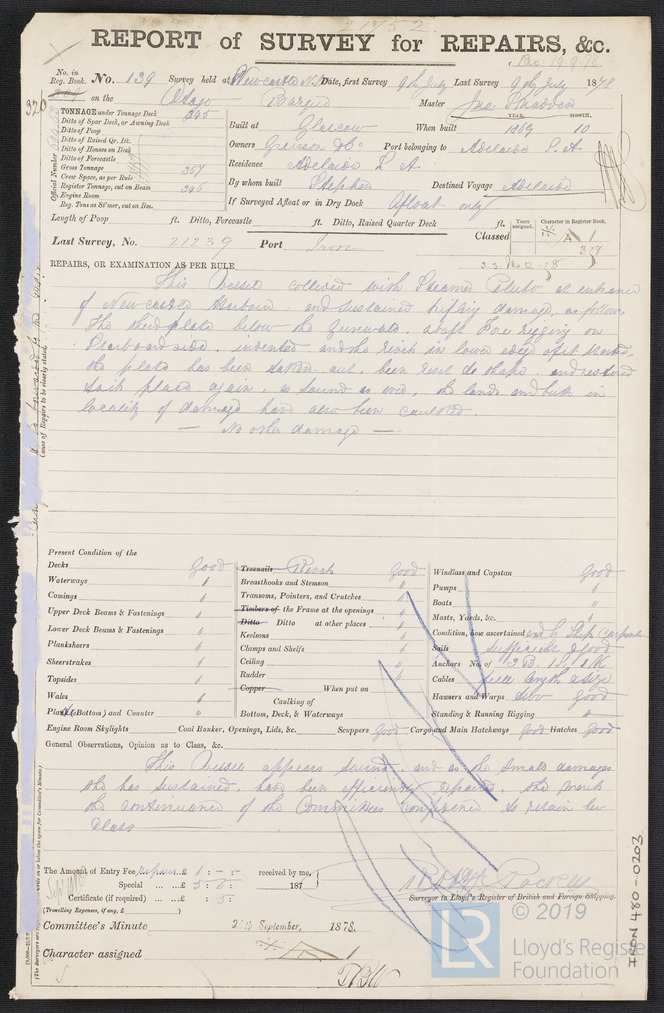 REPORT of SURVEY for REPAIRS, &c.
No. in Reg. Book. No. 139 Survey held at Newcastle Date, first Survey 9th July Last Survey 9th July 1878
on the Barque Master
TONNAGE under Tonnage Deck 345
Ditto of Spar Deck, or Awning Deck
Ditto of Poop
Ditto of Raised Qr. Dk.
Ditto of Houses on Deck
Ditto of Forecastle
Gross Tonnage 357
Crew Space, as per Rule
Register Tonnage, cut on Beam 346
Engine Room
Reg. Tons as St'mer, cut on Bm.
Official Number
Built at Glasgow When built YEAR. 1869 MONTH. 10
Owners Port belonging to Adelaide S.A
Residence Adelaide S. A.
By whom built Stephen Destined Voyage Adelaide
If Surveyed Afloat or in Dry Dock Afloat only
Length of Poop ft. Ditto, Forecastle ft. Ditto, Raised Quarter Deck ft.
Last Survey, No. 21239 Port
Classed Years assigned. Character in Register Book.
A 1
REPAIRS, OR EXAMINATION AS PER RULE
This Vessel collided with Steamer at entrance
of Newcastle Harbour and sustained trifling damage, as follows,
The third plate below the gunwale, abaft Fore rigging on
Starboard side, indented and the rivets in lower edge of it started,
the plate has been taken out, been reset to shape and restored
to it place again, as sound as ever, the lands and butts in
locality of damage have also been caulked
— No other damage —
Present Condition of the
Decks Good
Waterways "
Comings "
Upper Deck Beams & Fastenings "
Lower Deck Beams & Fastenings "
Planksheers "
Sheerstrakes "
Topsides "
Wales "
Plank (Bottom) and Counter "
Treenails Rivets Good
Breasthooks and Stemson "
Transoms, Pointers, and Crutches "
Timbers of the Frame at the openings "
Ditto Ditto at other places "
Keelsons "
Clamps and Shelfs "
Ceiling "
Rudder "
Copper When put on
Caulking of
Bottom, Deck, & Waterways
Windlass and Capstan Good
Pumps "
Boats "
Masts, Yards, &c. "
Condition, how ascertained Ship Carpenter
Sails sufficient & Good
Anchors No. of 3 B. 1 S. 1 K
Cables length & size
Hawsers and Warps Good
Standing & Running Rigging "
Engine Room Skylights Coal Bunker, Openings, Lids, &c. Scuppers Good Cargo and Main Hatchways Good Hatches Good
General Observations, Opinion as to Class, &c.
This Vessel appears sound and as the small damages
she has sustained, have been efficiently repaired, she merits
the continuance of the Committees confidence to retain her
Class
The Amount of Entry Fee £ 1 : - : - received by me,
Special £ 3 : 3 :
Certificate (if required) £ : 5 : 187
(Travelling Expenses, if any, £ )
Surveyor to Lloyd's Register of British and Foreign Shipping.
Committee's Minute 24 September, 1878.
Character assigned
© 2019
LR
Lloyd's Register
Foundation
IRON 480-0203